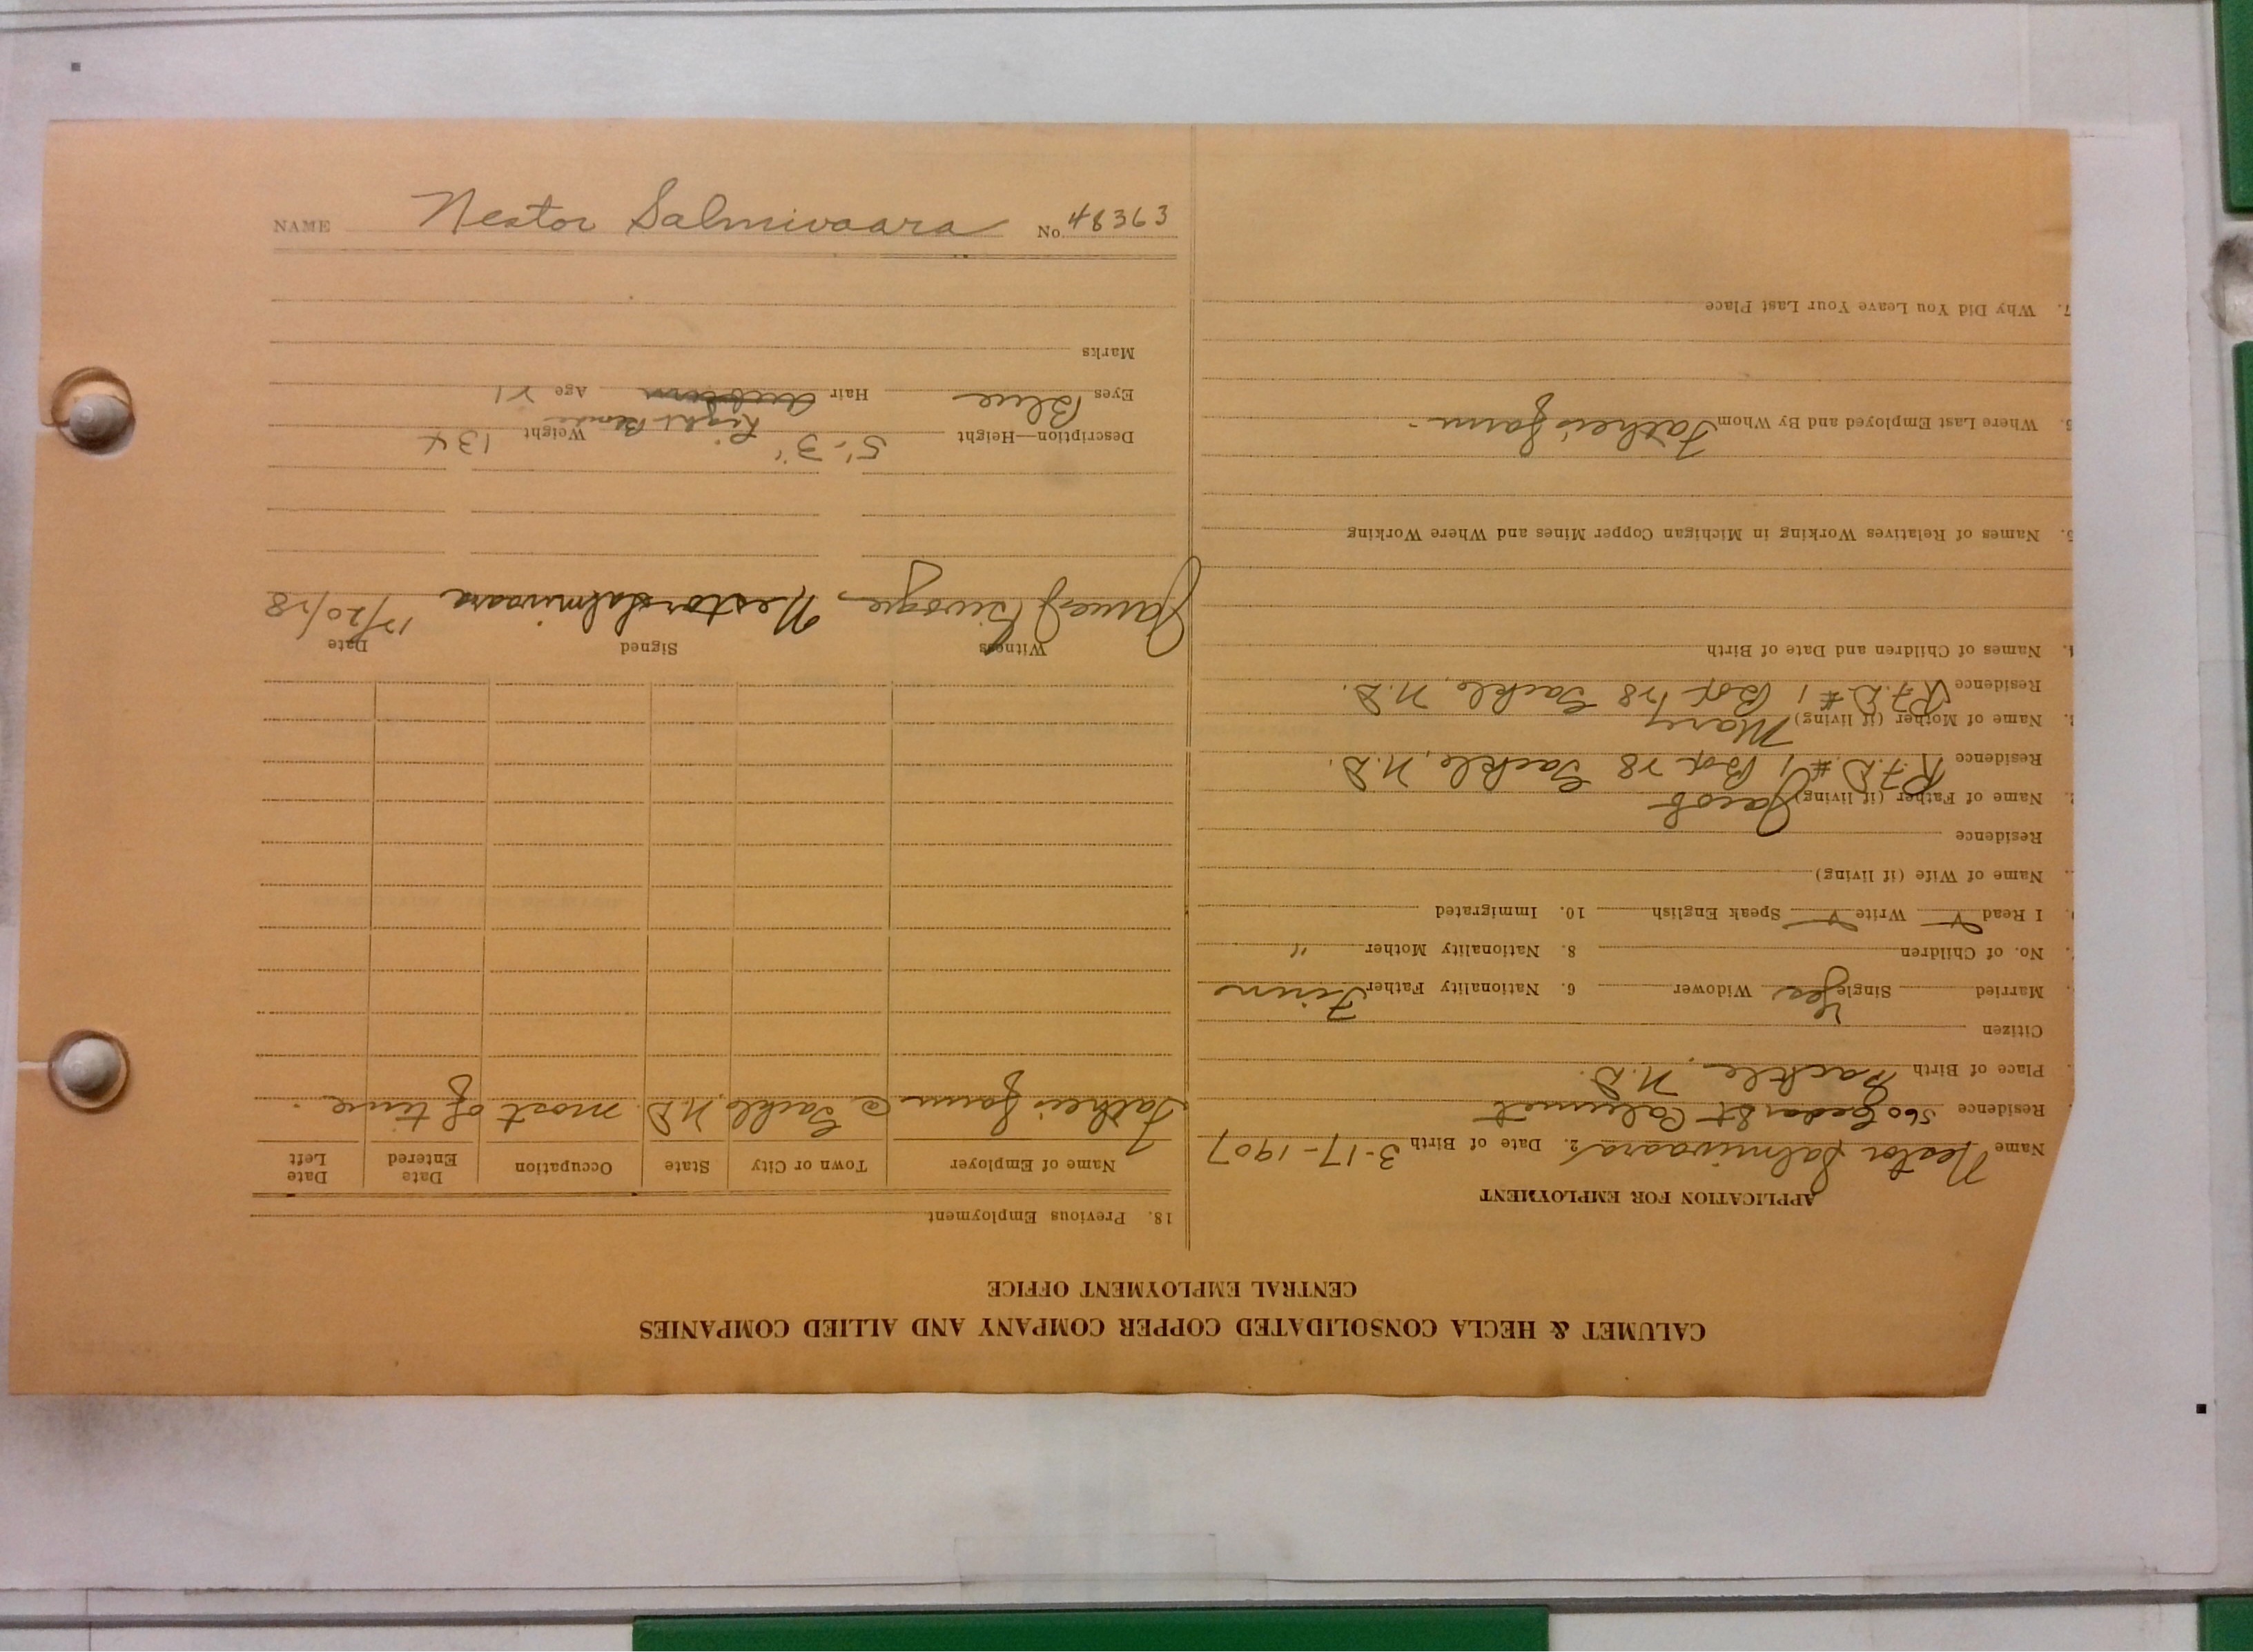 NAME Nestor Salmivaara No. 48363
CALUMET & HECLA CONSOLIDATED COPPER COMPANY AND ALLIED COMPANIES
CENTRAL EMPLOYMENT OFFICE
APPLICATION FOR EMPLOYMENT
Name Nestor Salmivaara 2. Date of Birth 3-17-1907
Residence 560 Cedar St Calumet
Place of Birth Gackle, N.D.
Citizen
Married Single Yes Widower 6. Nationality Father Finn
No. of Children 8. Nationality Mother "
I Read ✓ Write ✓ Speak English 10. Immigrated
Name of Wife (if living)
Residence
Name of Father (if living) Jacob
Residence R.F.D. #1 Box 28 Gackle, N.D.
Name of Mother (if living) Mary
Residence R.F.D. #1 Box 28 Gackle, N.D.
Names of Children and Date of Birth
Names of Relatives Working in Michigan Copper Mines and Where Working
Where Last Employed and By Whom Father's farm
7. Why Did You Leave Your Last Place
18. Previous Employment
Name of Employer Town or City State Occupation Date Entered Date Left
Father's farm @ Gackle, N.D. most of time.
Witness Signed Date
James Nestor Salmivaara 12/20/28
Description—Height 5'-3" Weight 134
Light Blonde
Eyes Blue Hair Auburn Age 21
Marks